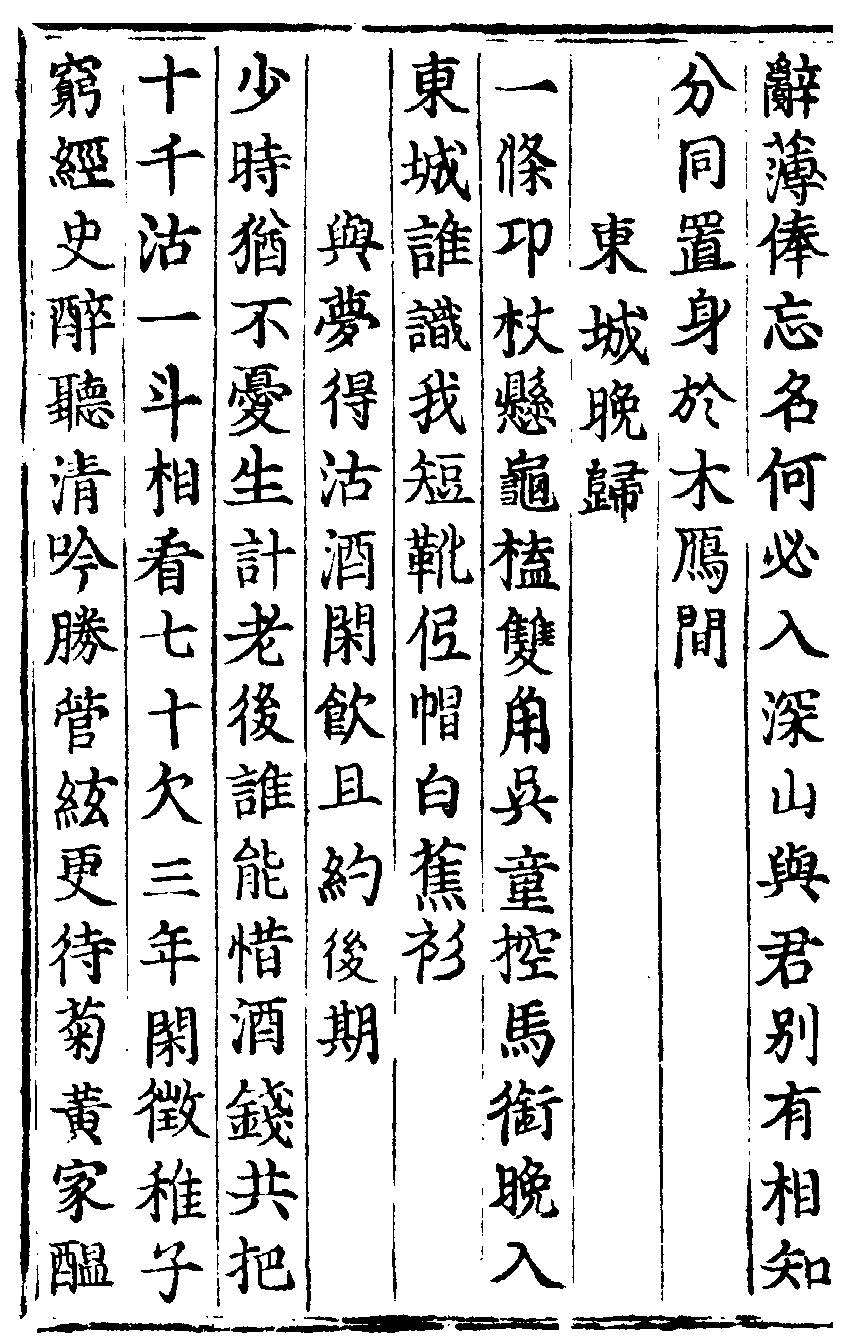 辭薄俸忘名何必入深山與君别有相知
分同置身於木鴈間
東城晚歸
一條卭杖懸龜榼雙角吳童控馬銜晚入
東城誰識我短靴低帽白蕉衫
與夢得沽酒閑飲且約後期
少時猶不憂生計老後誰能惜酒錢共把
十千沽一斗相看七十欠三年閑徵稚子
窮經史醉聽清吟勝管絃更待菊黃家醞